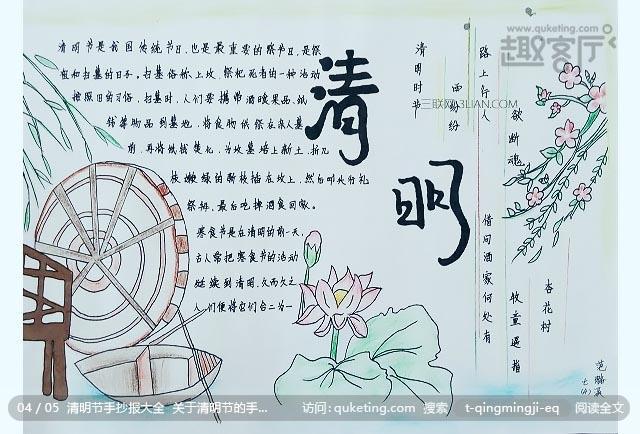 www.quketing.com
趣客厅
清明
清明节是我国传统节日，也是最重要的祭节日，是祭
祖和扫墓的日子。扫墓俗称上坟，祭祀死者的一种活动
按照旧的习俗，扫墓时，人们要携带酒食果品，纸
钱等物品到墓地，将食物供祭在亲人墓
前，再将纸钱焚化，为坟墓培上新土，折几
枝嫩绿的新枝插在坟上，然后叩头行礼
祭拜，最后吃掉酒食回家。
寒食节是在清明的前一天，
古人常把寒食节的活动
延续到清明，久而久之
人们便将它们合二为一
清明时节
雨纷纷
路上行人
欲断魂
借问酒家何处有
牧童遥指
杏花村
三联网 3LIAN.COM
04 / 05 清明节手抄报大全 关于清明节的手... 访问: quketing.com 搜索 t-qingmingji-eq 阅读全文